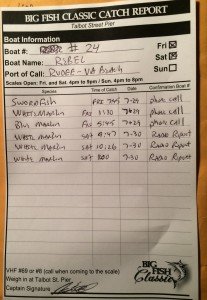 BIG FISH CLASSIC CATCH REPORT
Talbot Street Pier
Boat Information
Boat #: # 24 Fri ☒
Boat Name: REBEL Sat ☒
Port of Call: RUDEE - VA Beach Sun ☐
Scales Open: Fri. and Sat. 4pm to 9pm; Sun. 4pm to 8pm
Species Time of Catch Date Confirmation Boat #
Swordfish Fri 7:45 7/29 phone call
White Marlin Fri 1:30 7/29 phone call
Blue Marlin Fri 5:45 7/29 phone call
White Marlin Sat 6:47 7-30 Radio Report
White Marlin Sat 10:26 7-30 Radio Report
White Marlin Sat 7-30 Radio Report
VHF #69 or #8 (call when coming to the scale)
Weigh in at Talbot St. Pier
Captain Signature
BIG FISH Classic